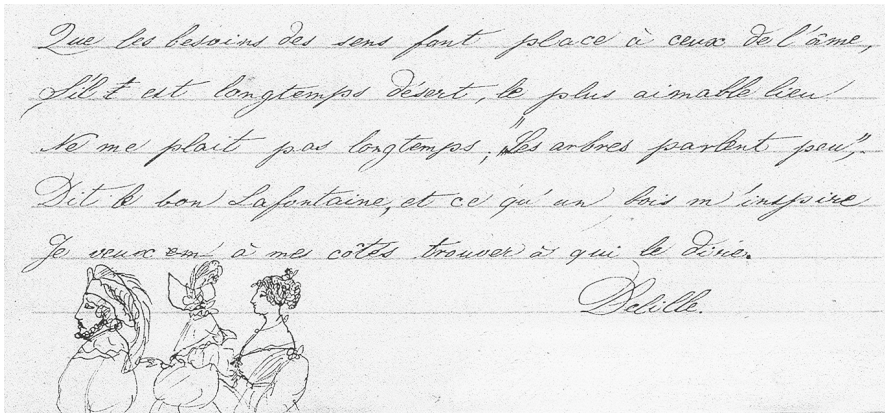 Que les besoins des sens font place à ceux de l'âme,
S'il est longtemps désert, le plus aimable lieu
Ne me plait pas longtemps; "Les arbres parlent peu",
Dit le bon Lafontaine, et ce qu'un bois m'inspire
Je veux à mes côtés trouver à qui le dire.
Delille.